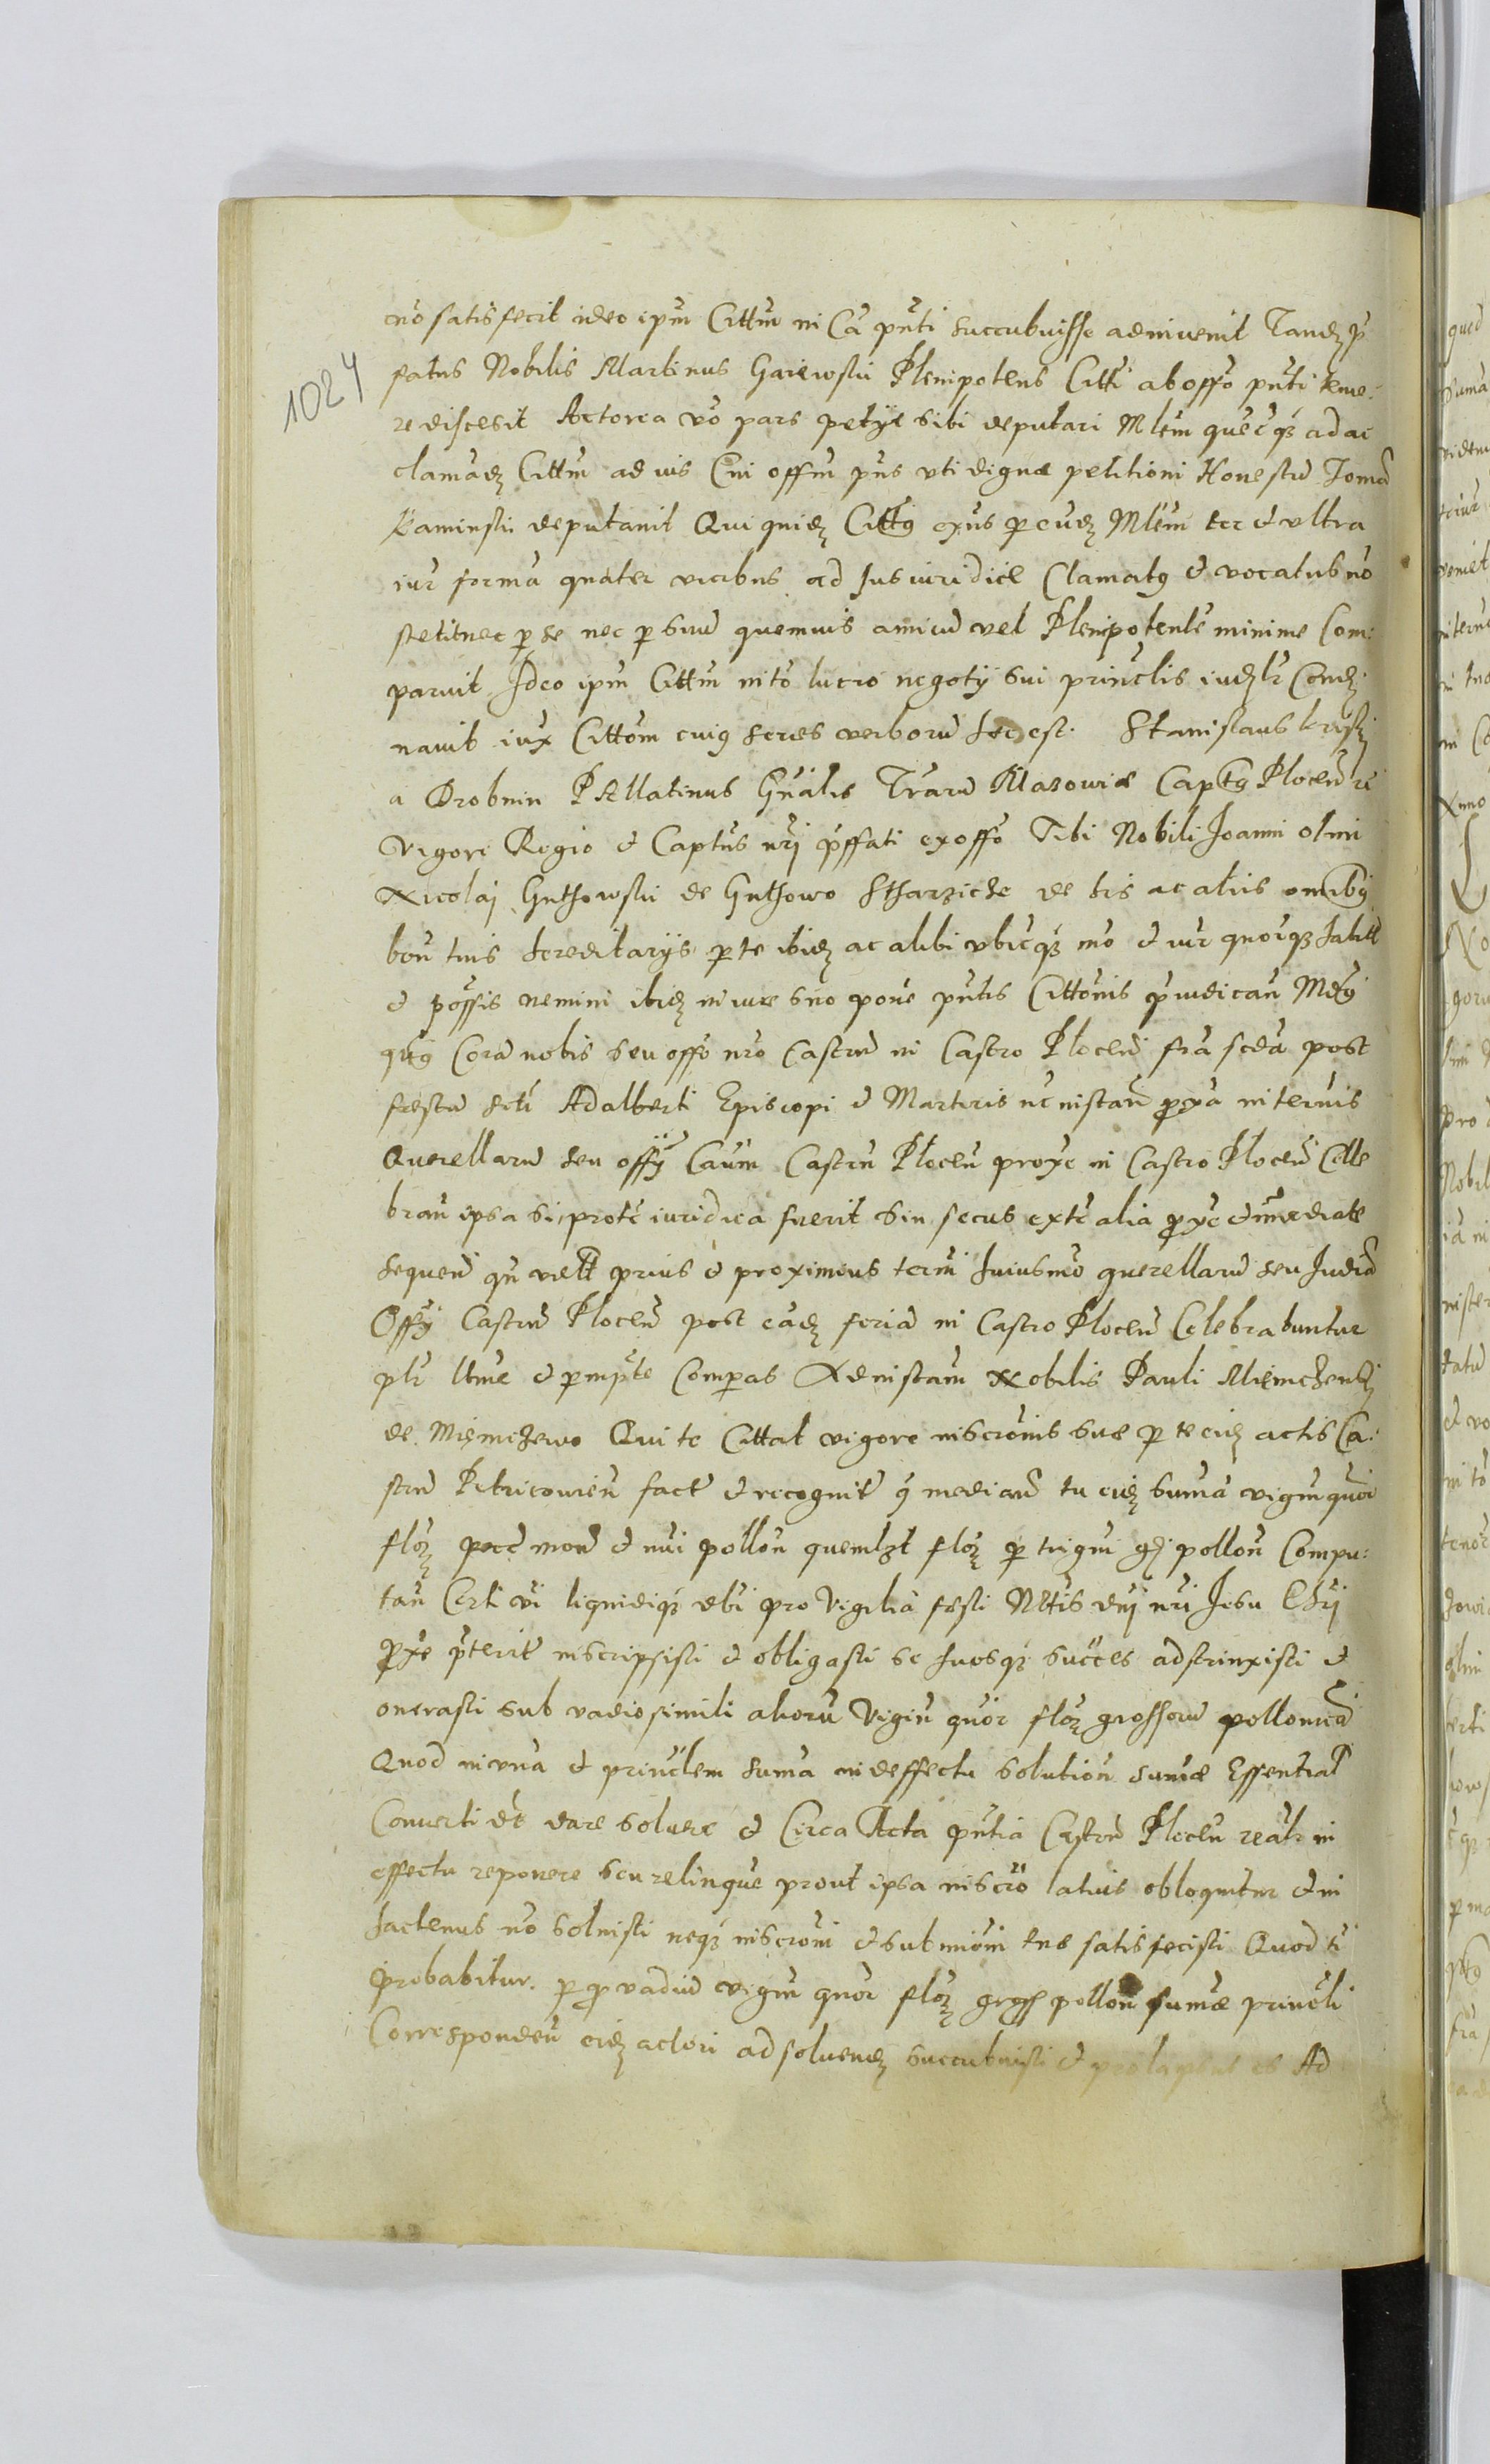 1024
nō satisfecit ideo ipm̄ Cittm̄ in Cā pn̄ti succubuisse adinvenit Tandȝ p̄
fatus Nobilis Martinus Gaiewski Plenipotens Citti ab offō pn̄ti teme:
re discesit Actorea vō pars petyt sibi deputari Mlēm quēcqȝ ad ac
clamādȝ Cittm̄ ad ius Cui offm̄ pn̄s uti dignæ petitioni Honestū Tomā
Kaminski deputavit Qui quidȝ Cittg exn̄s p eūdȝ Mlēm ter et ultra
iur formā quater vicibus ad Jus iuridice Clamatg et vocatus nō
stetit nec p se nec p suū quemvis amicū vel Plenipotentē minime Com:
paruit Ideo ipm̄ Cittm̄ in tō lucro negoty sui princlis iudlr Condē
navit iux Cittōm cuig series verborū hec est. Stanislaus Kriski
a Drobnin Pallatinus Gn̄alis Trarū Masoviæ Captg Plocen̄ re
Vigore Regio et Captus nrj p̄ffati ex offō Tibi Nobili Joanni olim
Nicolaj Guthowski de Guthowo Stharziche de his ac aliis omibg
bon̄ tuis hereditarijs p te ibidȝ ac alibi ubicqȝ mō et iur quōcqȝ habitt
et possis nemini ibidȝ in iure suo pone pn̄tis Cittōnis p̄iudican̄ Mdg
qtg Corā nobis seu offō nrō Castrn̄ in Castro Plocen̄ frā scdā post
festū scti Adalberti Episcopi et Martiris nc̄ instan̄ p̄xā in termis
Querellarū seu offÿ Caūm Castrn̄ Plocen̄ proxe in Castro Plocen̄ Cele
bran̄ ipsa si protc̄ iuridica fuerit sin secus extc̄ alia p̄xe et im̄ediate
sequen̄ qn̄ vellt prius et proximius term̄ huiusmō querellarū seu Judiā
Offÿ Castrn̄ Plocen̄ post eādȝ feriā in Castro Plocen̄ Celebrabuntur
plr ltme et pmpte Compas Ad instan̄ Nobilis Pauli Miemchewski
de Miemchewo Qui te Cittat vigore inscrōnis suæ p te eidȝ actis Ca:
strn̄ Petricovien̄ fact et recognit q̄ median̄ tu eidȝ sumā viginquōr
flōȝ pecc̄ mon̄ et nūi pollon̄ quemlȝt flōȝ p trigin̄ gȝ pollon̄ Compu:
tan̄ Certi vri liquidiqȝ dbi pro Vigilia festi Ntīs dnj nri Jesu Chrj
p̄xe p̄terit inscripsisti et obligasti se suosqȝ succes adstrinxisti et
onerasti sub vadio simili alioru Vigin̄ quōr flōȝ grossorū pollonicā
Quod in una et princlem sumā in deffectu solution̄ sumæ Essential
Converti dēt dare solvere et Circa Acta pn̄tia Castrn̄ Plocen̄ realr in
effectu reponere seu relinque prout ipsa inscrō latius obloquitur et in
hactenus nō solvisti neqȝ inscrōni et submiōni tuæ satisfecisti Quod ti
probabitur. p q̄ vadiū vigin̄ quōr flōȝ gross pollon̄ sumæ princli
Corresponden̄ eidȝ actori ad solvendȝ succubuisti et prolapsus es Ad